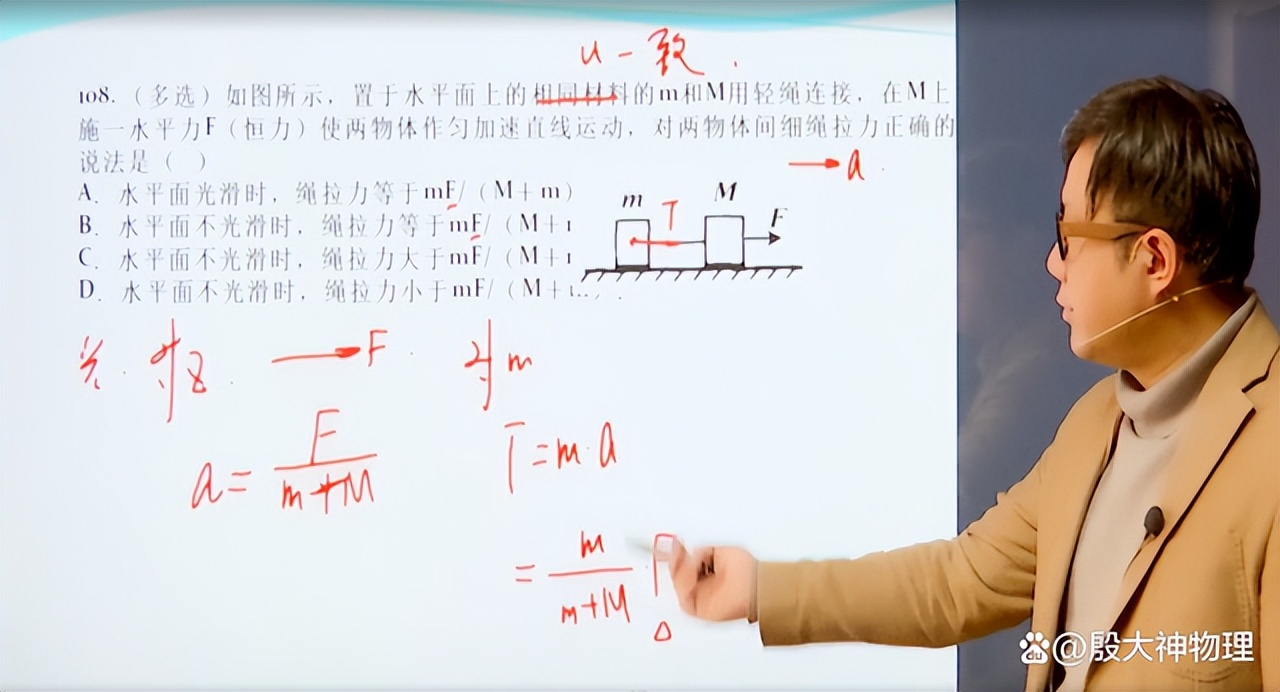 u一致.
108.（多选）如图所示，置于水平面上的相同材料的m和M用轻绳连接，在M上
施一水平力F（恒力）使两物体作匀加速直线运动，对两物体间细绳拉力正确的
说法是（ ）
→a
A. 水平面光滑时，绳拉力等于mF/（M＋m）
B. 水平面不光滑时，绳拉力等于mF/（M＋
C. 水平面不光滑时，绳拉力大于mF/（M＋
D. 水平面不光滑时，绳拉力小于mF/（M＋
m T M F
光. 对 →F. 对m
a=F/(m+M)
T=m·a
=m/(m+M)·F
du@殷大神物理